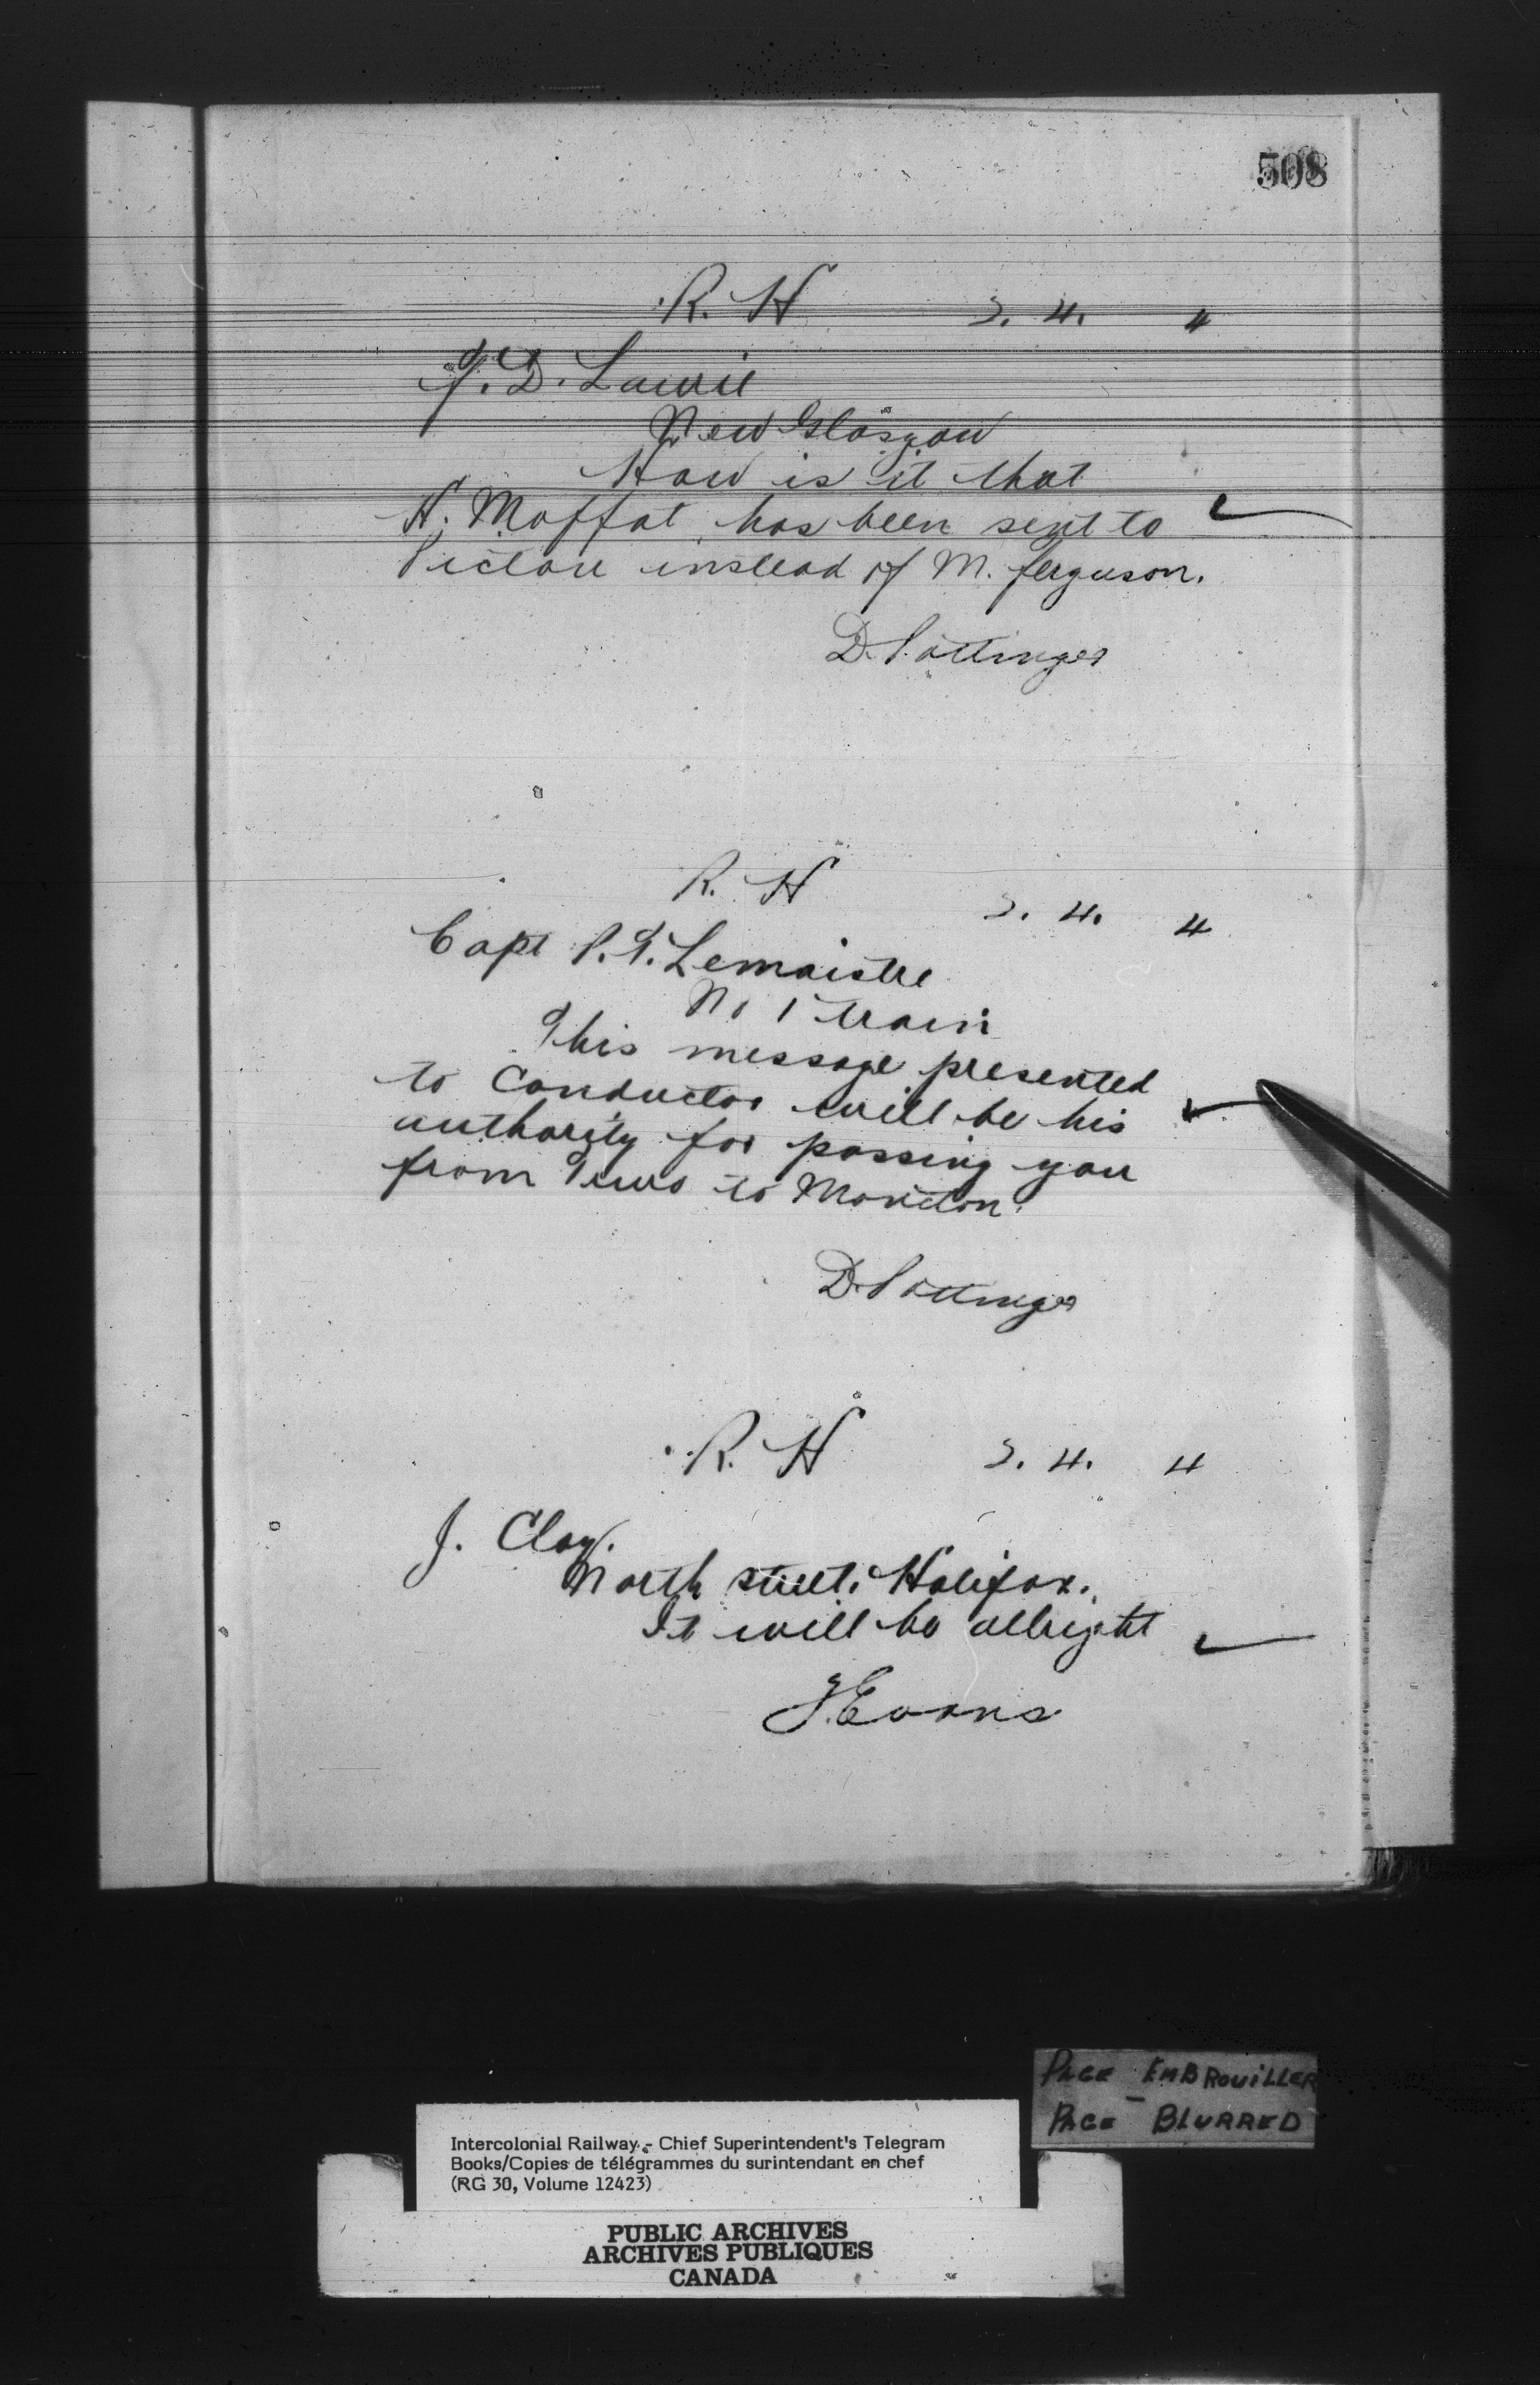 508
R. H 2. 4. 4
J. D. Lawie
New Glasgow
How is it that
H. Moffat has been sent to
Pictou instead of M. ferguson.
D. Pottinger
R. H 2. 4. 4
Capt P. T. Lemaistre
No 1 train
This message presented
to Conductor will be his
authority for passing you
from Truro to Moncton.
D. Pottinger
R. H 2. 4. 4
J. Clay.
North street. Halifax.
It will be allright
J. Evans
PAGE EMBROUiLLER
PAGE BLURRED
Intercolonial Railway - Chief Superintendent's Telegram
Books/Copies de télégrammes du surintendant en chef
(RG 30, Volume 12423)
PUBLIC ARCHIVES
ARCHIVES PUBLIQUES
CANADA